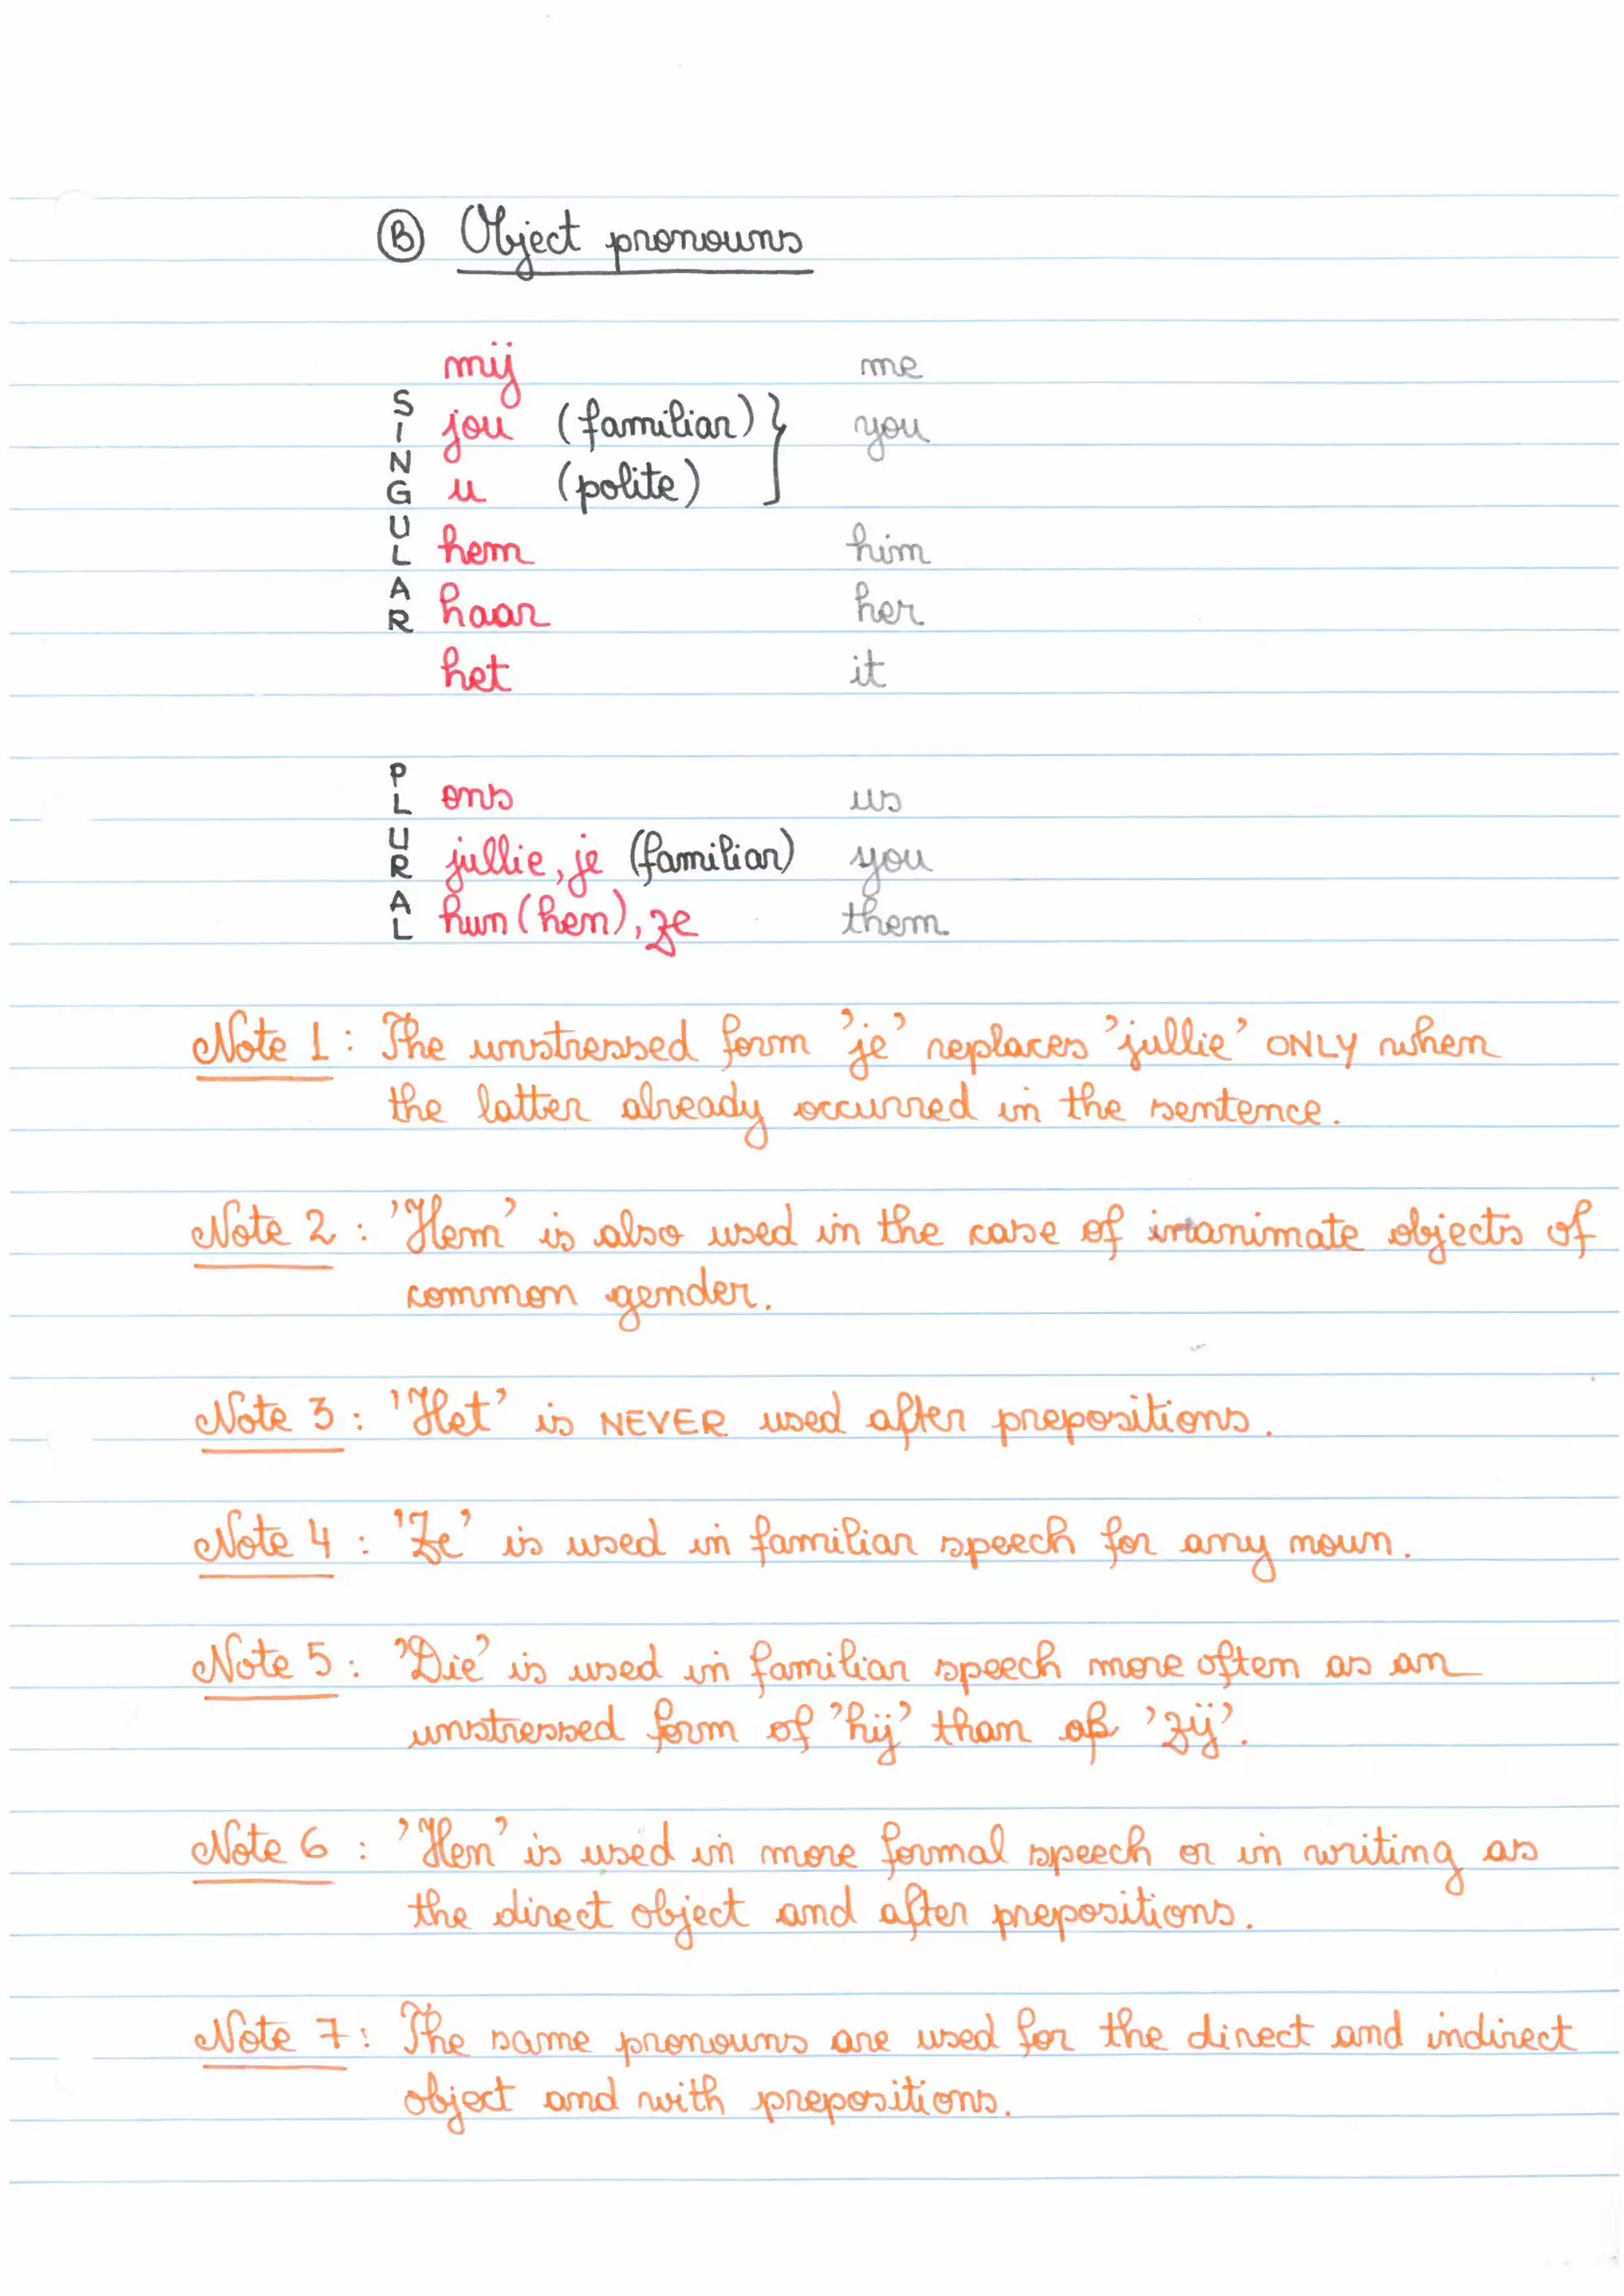 B Object pronouns
SINGULAR
mij me
jou (familiar) } you
u (polite)
hem him
haar her
het it
PLURAL
ons us
jullie, je (familiar) you
hun (hen), ze them.
Note 1 : The unstressed form 'je' replaces 'jullie' ONLY when
the latter already occurred in the sentence.
Note 2 : 'Hem' is also used in the case of inanimate objects of
common gender.
Note 3 : 'Het' is NEVER used after prepositions.
Note 4 : 'Ze' is used in familiar speech for any noun.
Note 5 : 'Die' is used in familiar speech more often as an
unstressed form of 'hij' than of 'zij'.
Note 6 : 'Hen' is used in more formal speech or in writing as
the direct object and after prepositions.
Note 7 : The same pronouns are used for the direct and indirect
object and with prepositions.